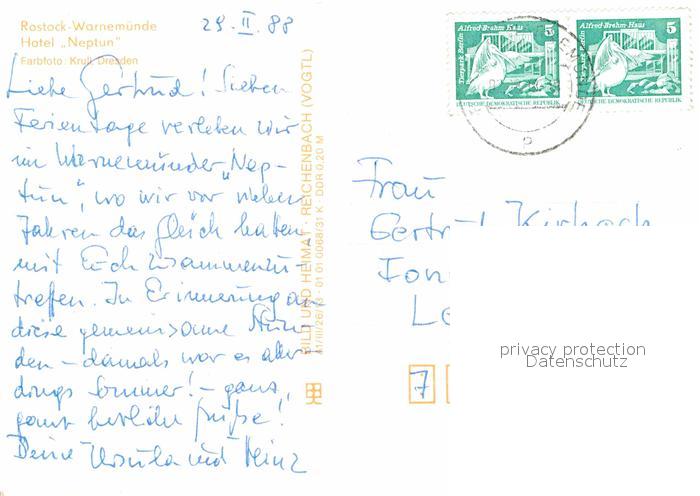 Rostock-Warnemünde
Hotel „Neptun"
Farbfoto: Krull, Dresden
29. II. 88
Liebe Gertrud! Sieben
Ferientage verleben wir
im Warnemünder „Nep-
tun", wo wir vor vielen
Jahren das Glück hatten,
mit Euch zusammenzu-
treffen. In Erinnerung an
diese gemeinsame Stun
den – damals war es aller
dings Sommer! – ganz,
ganz herzliche Grüße!
Deine Ursula und Heinz
BILD UND HEIMAT · REICHENBACH (VOGTL)
01 01 0068/31 K DDR 0,20 M
Tierpark Berlin
Alfred-Brehm-Haus
5
DEUTSCHE DEMOKRATISCHE REPUBLIK
Tierpark Berlin
Alfred-Brehm-Haus
5
DEUTSCHE DEMOKRATISCHE REPUBLIK
Frau
7
privacy protection
Datenschutz